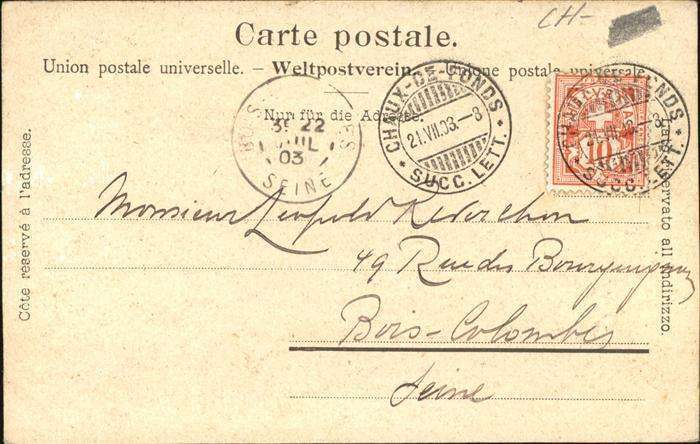 CH-
Carte postale.
Union postale universelle. – Weltpostverein. – Unione postale universale
Nur für die Adresse.
Côte reservé à l'adresse.
SEINE
22
JUIL
03
CHAUX-DE-FONDS
21.VII.03.–8
SUCC. LETT.
10
FONDS
SUCC. LETT.
Lato riservato all'indirizzo.
Monsieur Léopold
49 Rue des Bourguignons
Bois-Colombes
Seine